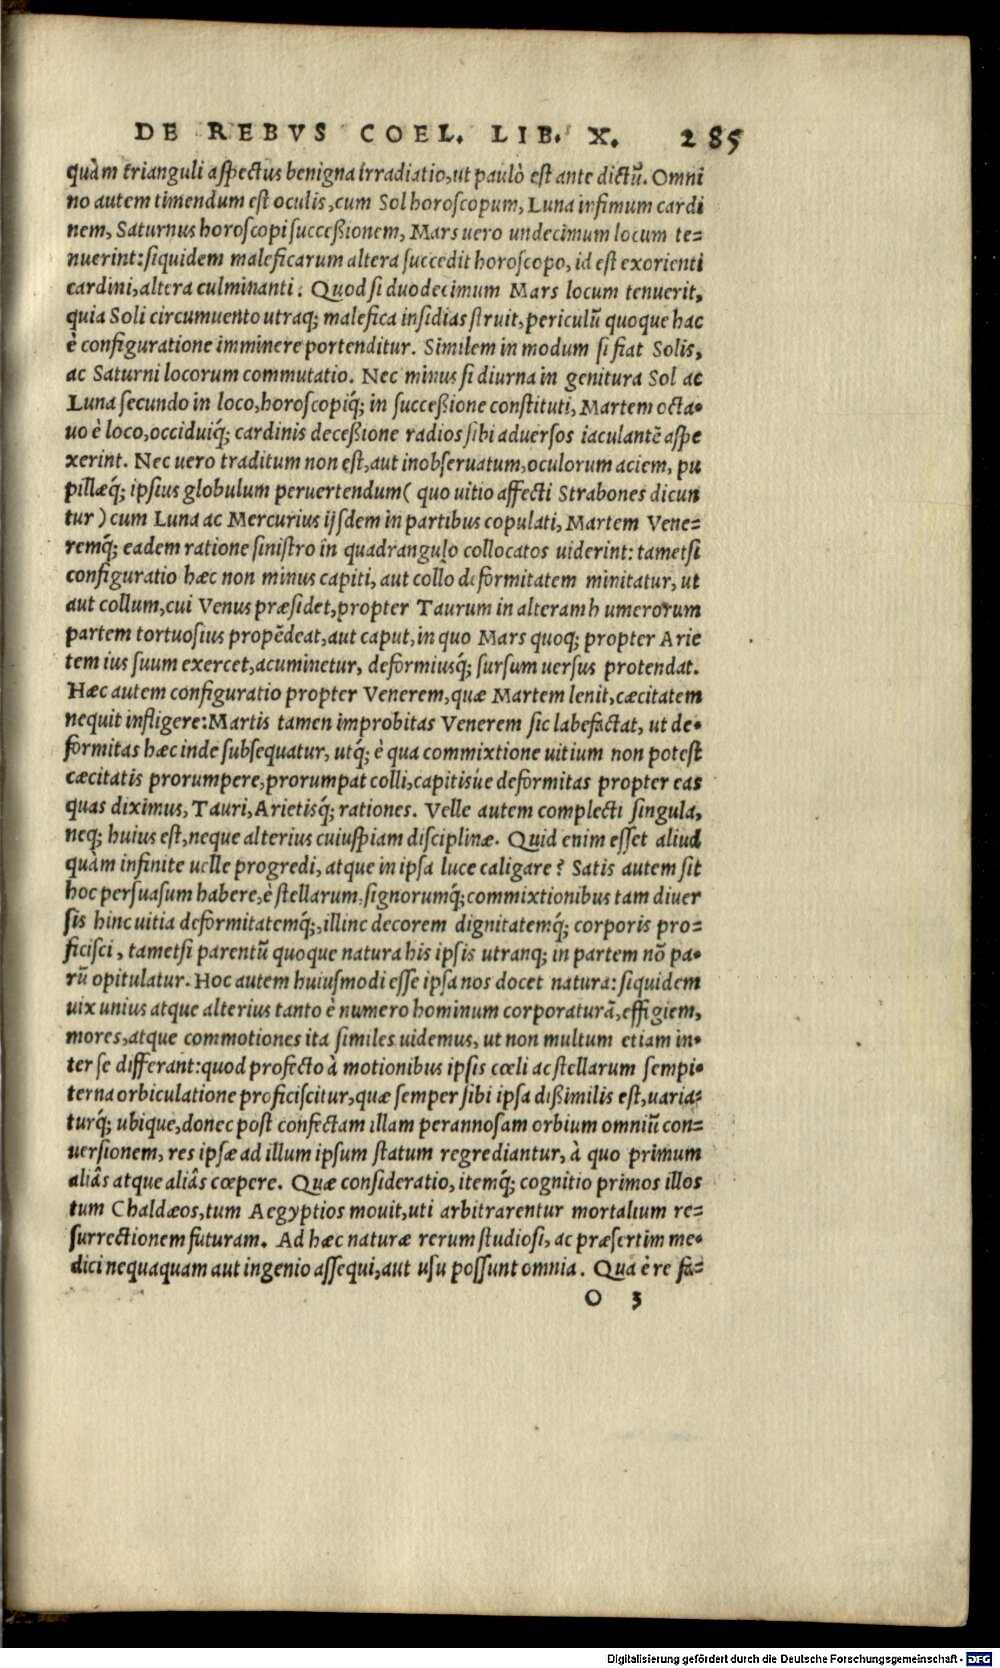 DE REBVS COEL. LIB. X. 285
quàm trianguli aspectus benigna irradiatio, ut paulò est ante dictũ. Omni
no autem timendum est oculis, cum Sol horoscopum, Luna infimum cardi
nem, Saturnus horoscopi successionem, Mars uero undecimum locum te=
nuerint: siquidem maleficarum altera succedit horoscopo, id est exorienti
cardini, altera culminanti. Quod si duodecimum Mars locum tenuerit,
quia Soli circumuento utraq; malefica insidias struit, periculũ quoque hac
è configuratione imminere portenditur. Similem in modum si fiat Solis,
ac Saturni locorum commutatio. Nec minus si diurna in genitura Sol ac
Luna secundo in loco, horoscopiq́; in successione constituti, Martem octa=
uo è loco, occiduiq́; cardinis decessione radios sibi aduersos iaculantẽ aspe
xerint. Nec uero traditum non est, aut inobseruatum, oculorum aciem, pu
pillæq́; ipsius globulum peruertendum ( quo uitio affecti Strabones dicun
tur ) cum Luna ac Mercurius ijsdem in partibus copulati, Martem Vene=
remq́; eadem ratione sinistro in quadrangulo collocatos uiderint: tametsi
configuratio hæc non minus capiti, aut collo deformitatem minitatur, ut
aut collum, cui Venus præsidet, propter Taurum in alteram humerorum
partem tortuosius propẽdeat, aut caput, in quo Mars quoq; propter Arie
tem ius suum exercet, acuminetur, deformiusq́; sursum uersus protendat.
Hæc autem configuratio propter Venerem, quæ Martem lenit, cæcitatem
nequit infligere: Martis tamen improbitas Venerem sic labefactat, ut de=
formitas hæc inde subsequatur, utq́; è qua commixtione uitium non potest
cæcitatis prorumpere, prorumpat colli, capitisúe deformitas propter eas
quas diximus, Tauri, Arietisq́; rationes. Velle autem complecti singula,
neq; huius est, neque alterius cuiuspiam disciplinæ. Quid enim esset aliud
quàm infinite uelle progredi, atque in ipsa luce caligare? Satis autem sit
hoc persuasum habere, è stellarum, signorumq́; commixtionibus tam diuer
sis hinc uitia deformitatemq́;, illinc decorem dignitatemq́; corporis pro=
ficisci, tametsi parentũ quoque natura his ipsis utranq; in partem nõ pa=
rũ opitulatur. Hoc autem huiusmodi esse ipsa nos docet natura: siquidem
uix unius atque alterius tanto è numero hominum corporaturã, effigiem,
mores, atque commotiones ita similes uidemus, ut non multum etiam in=
ter se differant: quod profecto à motionibus ipsis cœli ac stellarum sempi=
terna orbiculatione proficiscitur, quæ semper sibi ipsa dissimilis est, uaria=
turq́; ubique, donec post confectam illam perannosam orbium omniũ con=
uersionem, res ipsæ ad illum ipsum statum regrediantur, à quo primum
aliâs atque aliâs cœpere. Quæ consideratio, itemq́; cognitio primos illos
tum Chaldæos, tum Aegyptios mouit, uti arbitrarentur mortalium re=
surrectionem futuram. Ad hæc naturæ rerum studiosi, ac præsertim me=
dici nequaquam aut ingenio assequi, aut usu possunt omnia. Qua è re fa=
O 3
Digitalisierung gefördert durch die Deutsche Forschungsgemeinschaft - DFG